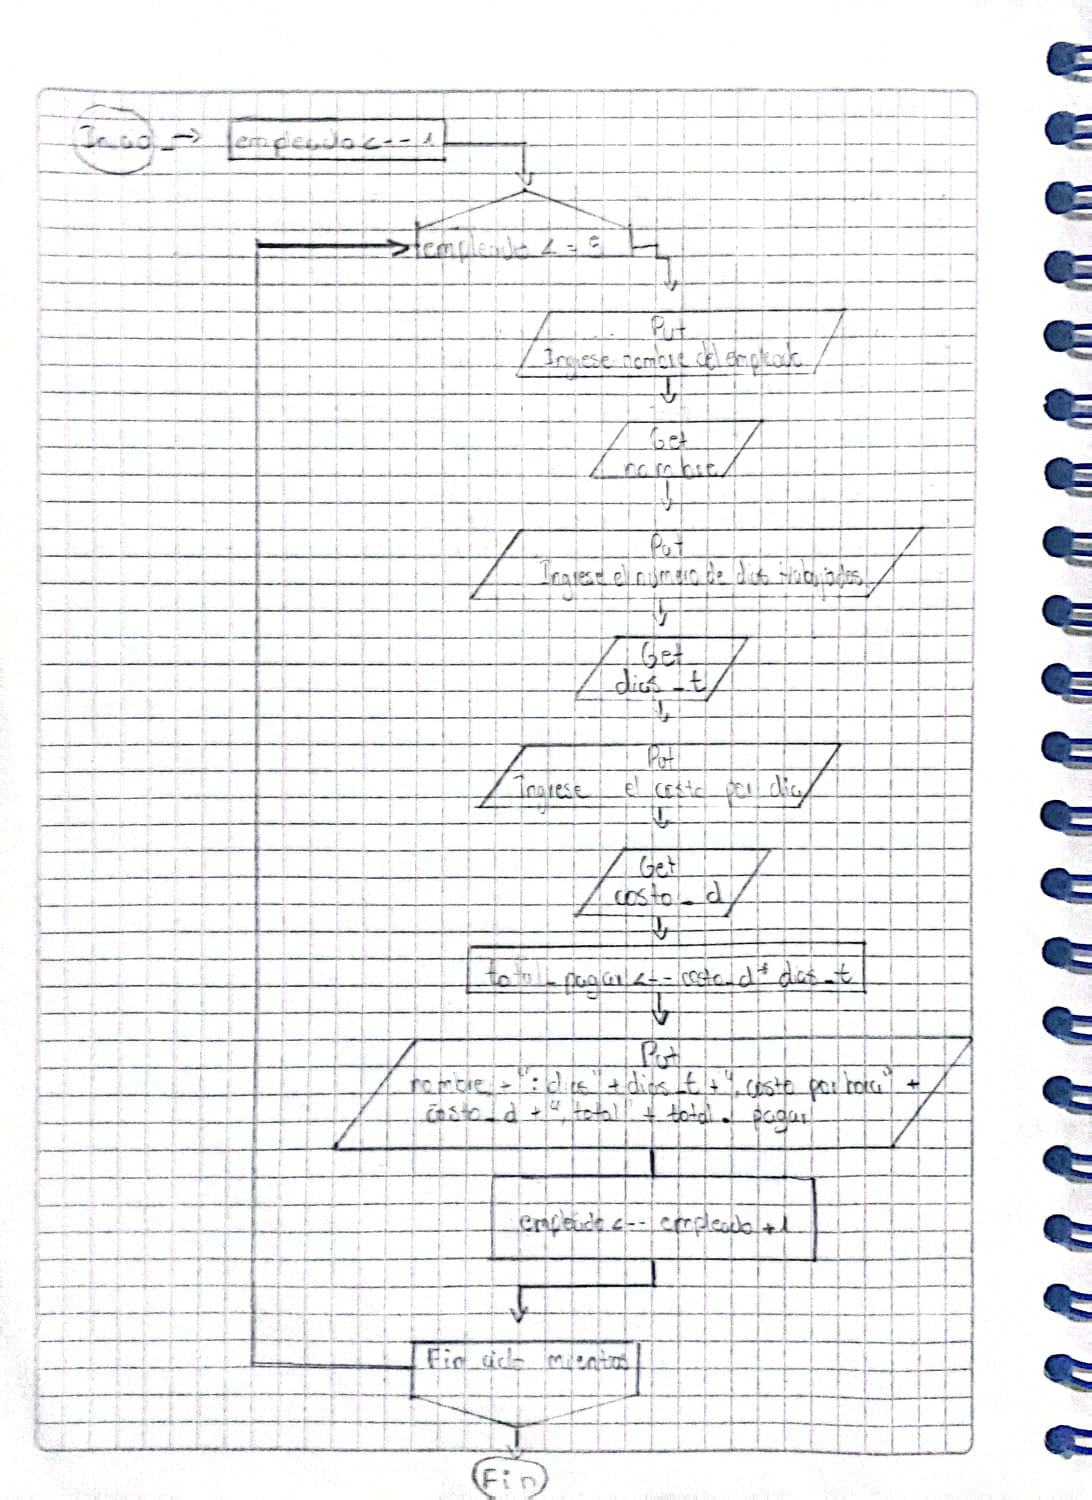 Inicio
empleado <-- 1
empleado <= 5
Put
Ingrese nombre del empleado
Get
nombre
Put
Ingrese el numero de dias trabajados
Get
dias_t
Put
Ingrese el costo por dia
Get
costo_d
total_pagar <-- costo_d * dias_t
Put
nombre + ": dias" + dias_t + ", costo por hora" +
costo_d + ", total" + total_pagar
empleado <-- empleado + 1
Fin ciclo mientras
Fin